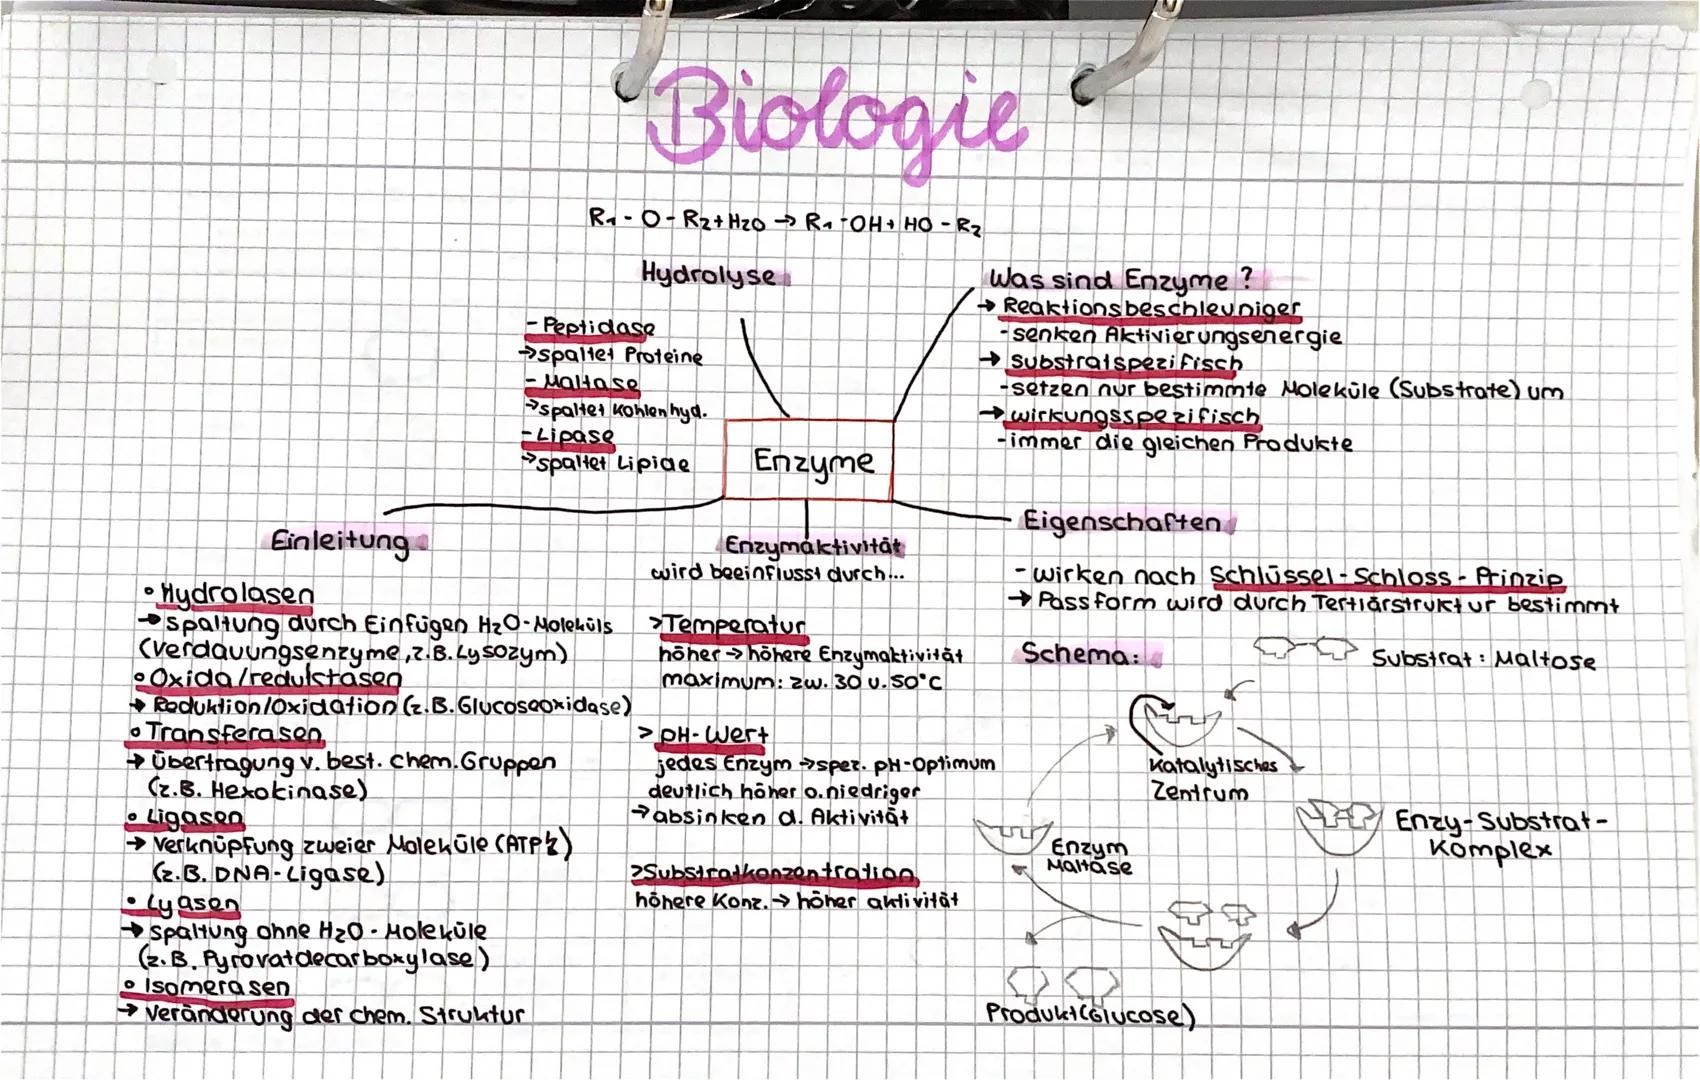 Biologie
R1 - O - R2 + H2O → R1 - OH + HO - R2
Hydrolyse
- Peptidase
→ spaltet Proteine
- Maltase
→ spaltet Kohlenhyd.
- Lipase
→ spaltet Lipide
Was sind Enzyme?
→ Reaktionsbeschleuniger
- senken Aktivierungsenergie
→ substratspezifisch
- setzen nur bestimmte Moleküle (Substrate) um
→ wirkungsspezifisch
- immer die gleichen Produkte
Enzyme
Einleitung
• Hydrolasen
→ Spaltung durch Einfügen H2O-Moleküls
(Verdauungsenzyme, z.B. Lysozym)
• Oxida/reduktasen
→ Reduktion/Oxidation (z.B. Glucoseoxidase)
• Transferasen
→ Übertragung v. best. chem. Gruppen
(z.B. Hexokinase)
• Ligasen
→ Verknüpfung zweier Moleküle (ATP↯)
(z.B. DNA-Ligase)
• Lyasen
→ Spaltung ohne H2O-Moleküle
(z.B. Pyrovatdecarboxylase)
• Isomerasen
→ Veränderung der chem. Struktur
Enzymaktivität
wird beeinflusst durch...
> Temperatur
höher → höhere Enzymaktivität
maximum: zw. 30 u. 50°C
> pH-Wert
jedes Enzym → spez. pH-Optimum
deutlich höher o. niedriger
→ absinken d. Aktivität
> Substratkonzentration
höhere Konz. → höher aktivität
Eigenschaften
- wirken nach Schlüssel-Schloss-Prinzip
→ Passform wird durch Tertiärstruktur bestimmt
Schema:
Substrat: Maltose
Katalytisches
Zentrum
Enzy-Substrat-
Komplex
Enzym
Maltase
Produkt(Glucose)